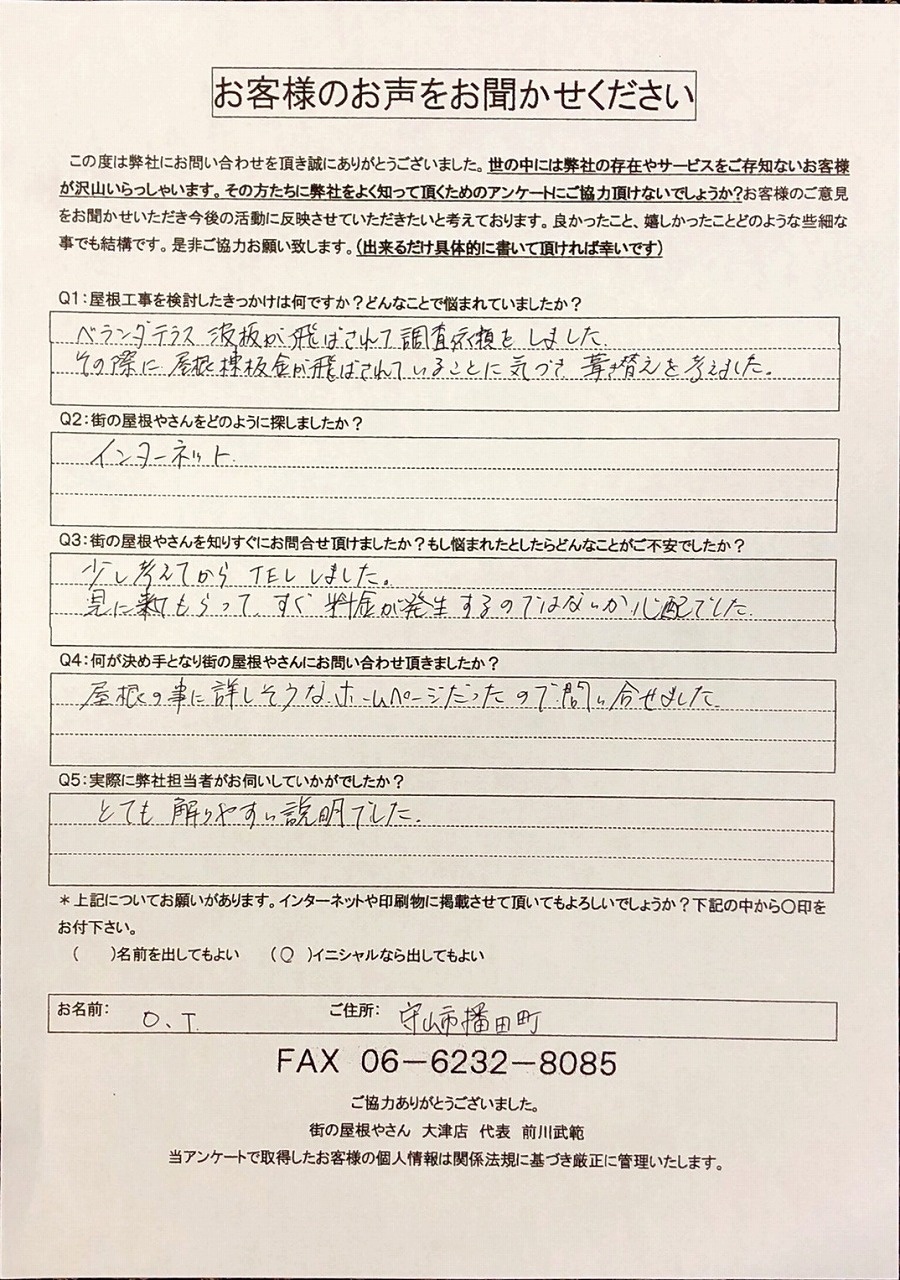 お客様のお声をお聞かせください
この度は弊社にお問い合わせを頂き誠にありがとうございました。世の中には弊社の存在やサービスをご存知ないお客様
が沢山いらっしゃいます。その方たちに弊社をよく知って頂くためのアンケートにご協力頂けないでしょうか?お客様のご意見
をお聞かせいただき今後の活動に反映させていただきたいと考えております。良かったこと、嬉しかったことどのような些細な
事でも結構です。是非ご協力お願い致します。(出来るだけ具体的に書いて頂ければ幸いです)
Q1:屋根工事を検討したきっかけは何ですか?どんなことで悩まれていましたか?
ベランダテラス 波板が飛ばされて調査依頼をしました。
その際に屋根棟板金が飛ばされていることに気づき 葺き替えを考えました。
Q2:街の屋根やさんをどのように探しましたか?
インターネット.
Q3:街の屋根やさんを知りすぐにお問合せ頂けましたか?もし悩まれたとしたらどんなことがご不安でしたか?
少し考えてから TELしました。
見に来てもらって、すぐ料金が発生するのではないか心配でした.
Q4:何が決め手となり街の屋根やさんにお問い合わせ頂きましたか?
屋根の事に詳しそうなホームページだったので問い合せました.
Q5:実際に弊社担当者がお伺いしていかがでしたか?
とても解りやすい説明でした.
*上記についてお願いがあります。インターネットや印刷物に掲載させて頂いてもよろしいでしょうか?下記の中から○印を
お付下さい。
(   )名前を出してもよい (○ )イニシャルなら出してもよい
お名前: O.T. ご住所: 守山市播田町
FAX 06-6232-8085
ご協力ありがとうございました。
街の屋根やさん 大津店 代表 前川武範
当アンケートで取得したお客様の個人情報は関係法規に基づき厳正に管理いたします。